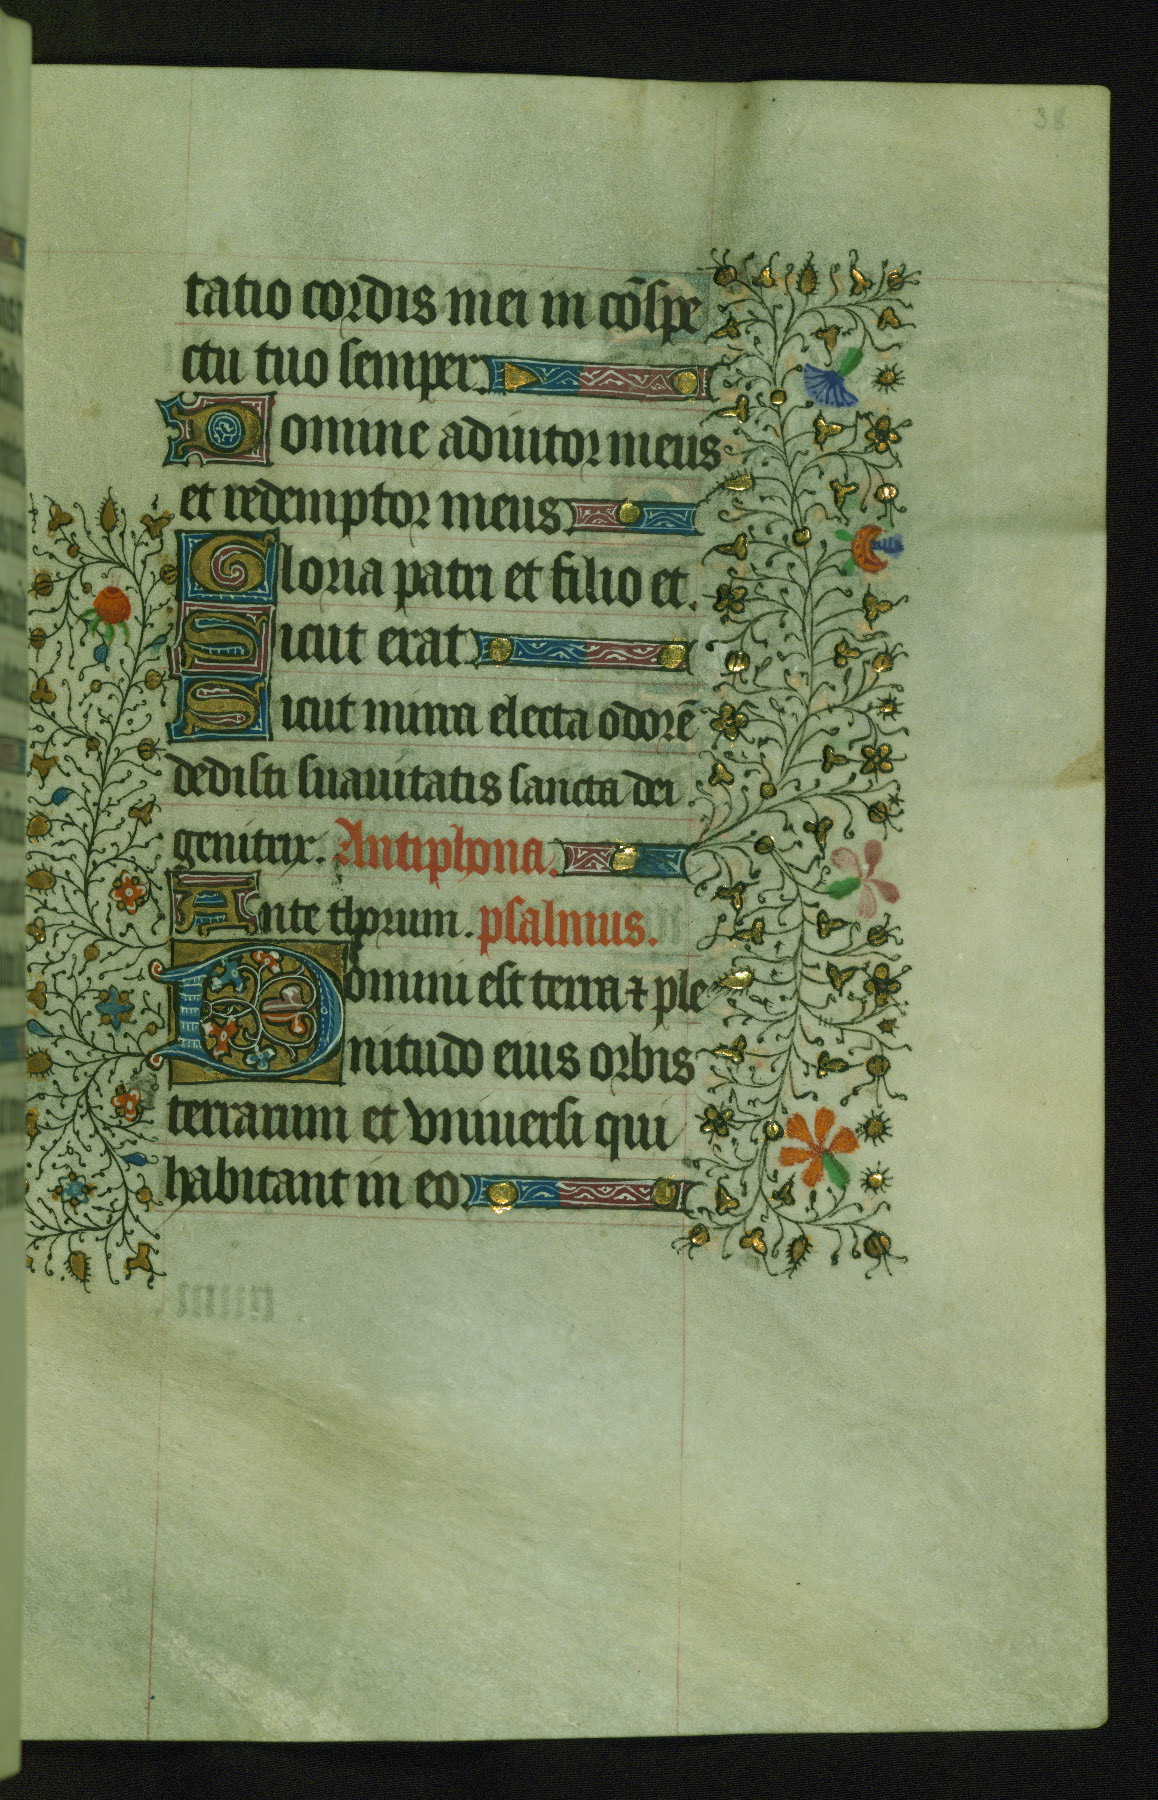 38
tatio cordis mei in cōspe
ctu tuo semper.
Domine adiutor meus
et redemptor meus
Gloria patri et filio et.
Sicut erat.
Sicut mirra electa odorē
dedisti suauitatis sancta dei
genitrix. Antiphona.
Ante thorum. psalmus.
Domini est terra ⁊ ple
nitudo eius orbis
terrarum et vniuersi qui
habitant in eo